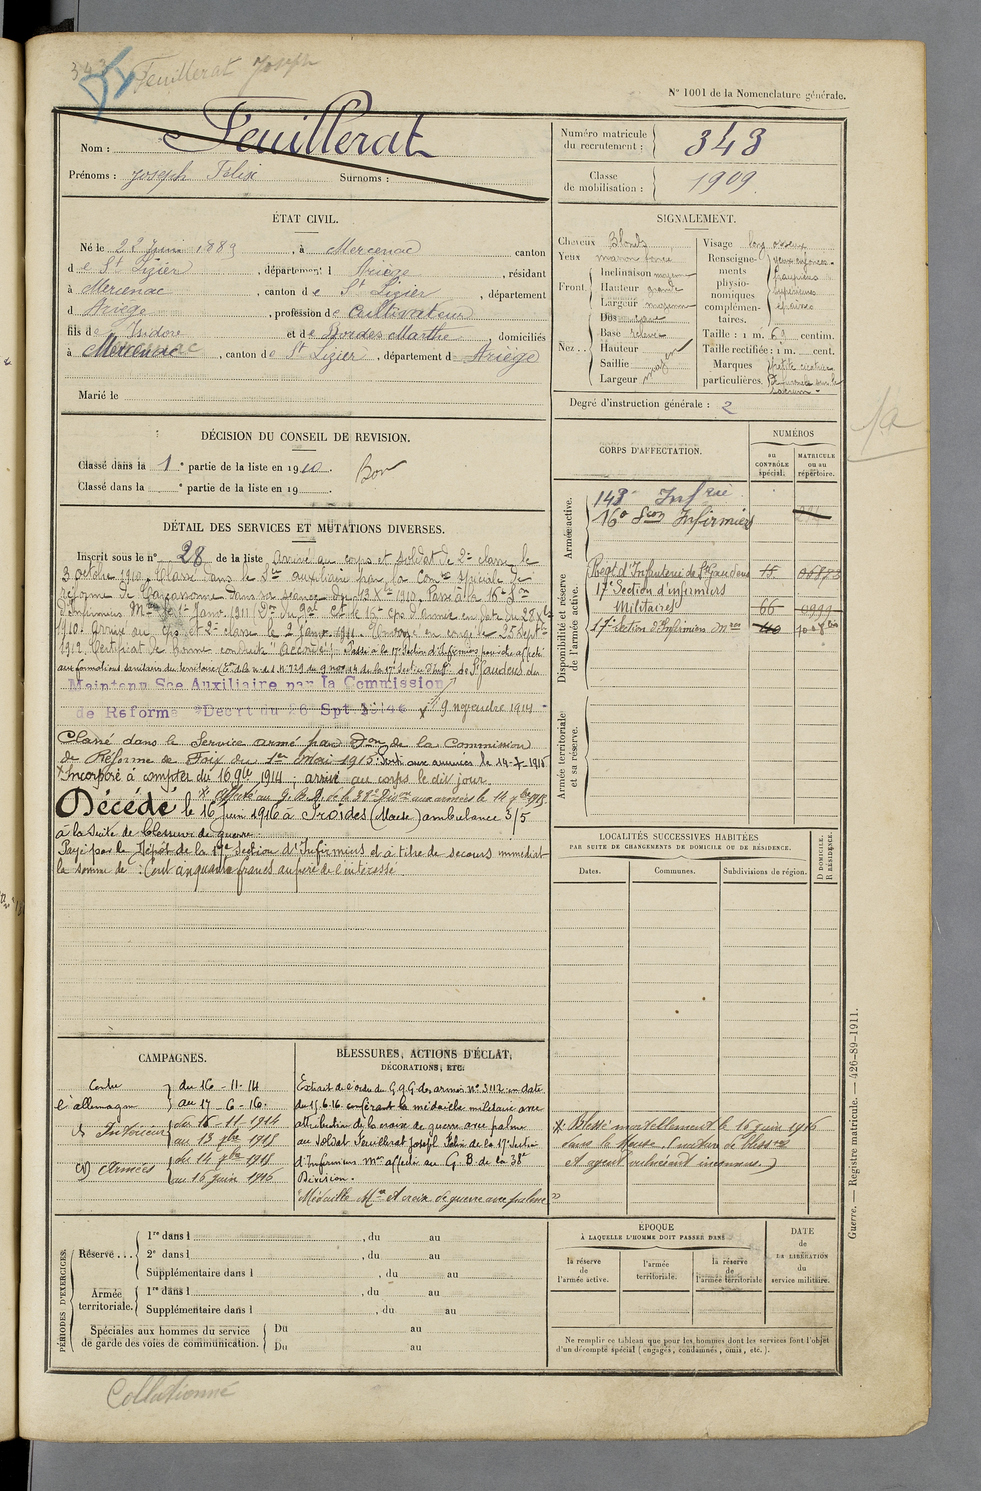 343 Feuillerat Joseph
N° 1001 de la Nomenclature générale.
Nom : Feuillerat
Prénoms : Joseph Félix Surnoms :
Numéro matricule du recrutement : 343
Classe de mobilisation : 1909
ÉTAT CIVIL.
Né le 22 Juin 1889, à Mercenac canton
de St Lizier, département d Ariège, résidant
à Mercenac, canton de St Lizier, département
d Ariège, profession de Cultivateur
fils de Isidore et de Bordes Marthe domiciliés
à Mercenac, canton de St Lizier, département d Ariège
Marié le
SIGNALEMENT.
Cheveux Blonds
Yeux marron foncé
Front. Inclinaison moyen
Hauteur grande
Largeur moyenne
Nez. Dos cave
Base relevée
Hauteur
Saillie
Largeur moyen
Visage long osseux
Renseignements physionomiques complémentaires. yeux enfoncés. paupières supérieures
Taille : 1 m. 69 centim.
Taille rectifiée : 1 m. cent.
Marques particulières. petite cicatrice
Degré d'instruction générale : 2
DÉCISION DU CONSEIL DE REVISION.
Classé dans la 1e partie de la liste en 1910. Bon
Classé dans la e partie de la liste en 19
DÉTAIL DES SERVICES ET MUTATIONS DIVERSES.
Inscrit sous le n° 28 de la liste Arrivé au corps et soldat de 2e classe le
3 octobre 1910. Classé dans le Sce auxiliaire par la Comon spéciale de
réforme de Carcassonne dans sa séance du 13 Xbre 1910. Passé à la 16e Son
d'Infirmiers Mres le 1er Janv. 1911 Don du Gal Ct le 16e Cps d'armée en date du 28 Xbre
1910. Arrivé au cps et 2e classe le 2 Janv. 1911. Envoyé en congé le 25 Septbre
1912. Certificat de bonne conduite "Accordé". Passé à la 17e Section d'Infirmiers
aux formations sanitaires du territoire
Maintenu Sce Auxiliaire par la Commission
de Reforme Décrt du 26 Spt 1914 9 novembre 1914
Classé dans le Service armé par Don de la Commission
de Réforme de Foix du 1er Mai 1915. Parti aux armées le 14-9-1915
x Incorporé à compter du 16 9bre 1914 ; arrivé au corps le dit jour.
x affecté au G.B.D. de la 38e Dion aux armées le 14 7bre 1915.
Décédé le 16 Juin 1916 à Froidos (Meuse) ambulance 3/5
à la suite de blessures de guerre.
Payé par le Dépôt de la 17e Section d'Infirmiers et à titre de secours immédiat
la somme de : Cent cinquante francs au père de l'intéressé
CORPS D'AFFECTATION.
NUMÉROS
au CONTRÔLE spécial.
MATRICULE ou au répertoire.
Armée active.
143e Infrie
16e Son Infirmiers
Disponibilité et réserve de l'armée active.
Regt d'Infanterie de St Gaudens 15
17e Section d'infirmiers
Militaires 66
17e Section d'Infirmiers Mres
Armée territoriale et sa réserve.
LOCALITÉS SUCCESSIVES HABITÉES
PAR SUITE DE CHANGEMENTS DE DOMICILE OU DE RÉSIDENCE.
Dates. Communes. Subdivisions de région. D DOMICILE. R RÉSIDENCE.
CAMPAGNES.
Contre du 16-11-14
l'allemagne au 17-6-16.
C.S. Intérieur du 16-11-1914
au 13 7bre 1915
C.D. Armées du 14 7bre 1915
au 16 juin 1916
BLESSURES, ACTIONS D'ÉCLAT, DÉCORATIONS, ETC.
Extrait de l'ordre du G.Q.G. des armées N° 3112 en date
du 15.6.16 conférant la médaille militaire avec
attribution de la croix de guerre avec palme
au Soldat Feuillerat Joseph Felix de la 17e Section
d'Infirmiers Mres affecté au G.B. de la 38e
Division.
"Médaille Mre et croix de guerre avec palme"
x Blessé mortellement le 15 juin 1916
dans la Meuse.
PÉRIODES D'EXERCICES.
Réserve... 1re dans l , du au
2e dans l , du au
Supplémentaire dans l , du au
Armée territoriale. 1re dans l , du au
Supplémentaire dans l , du au
Spéciales aux hommes du service de garde des voies de communication. Du au
Du au
ÉPOQUE
À LAQUELLE L'HOMME DOIT PASSER DANS
la réserve de l'armée active.
l'armée territoriale.
la réserve de l'armée territoriale
DATE de LA LIBÉRATION du service militaire.
Ne remplir ce tableau que pour les hommes dont les services font l'objet
d'un décompte spécial (engagés, condamnés, omis, etc.).
Guerre. — Registre matricule. — 426-89-1911.
Collationné